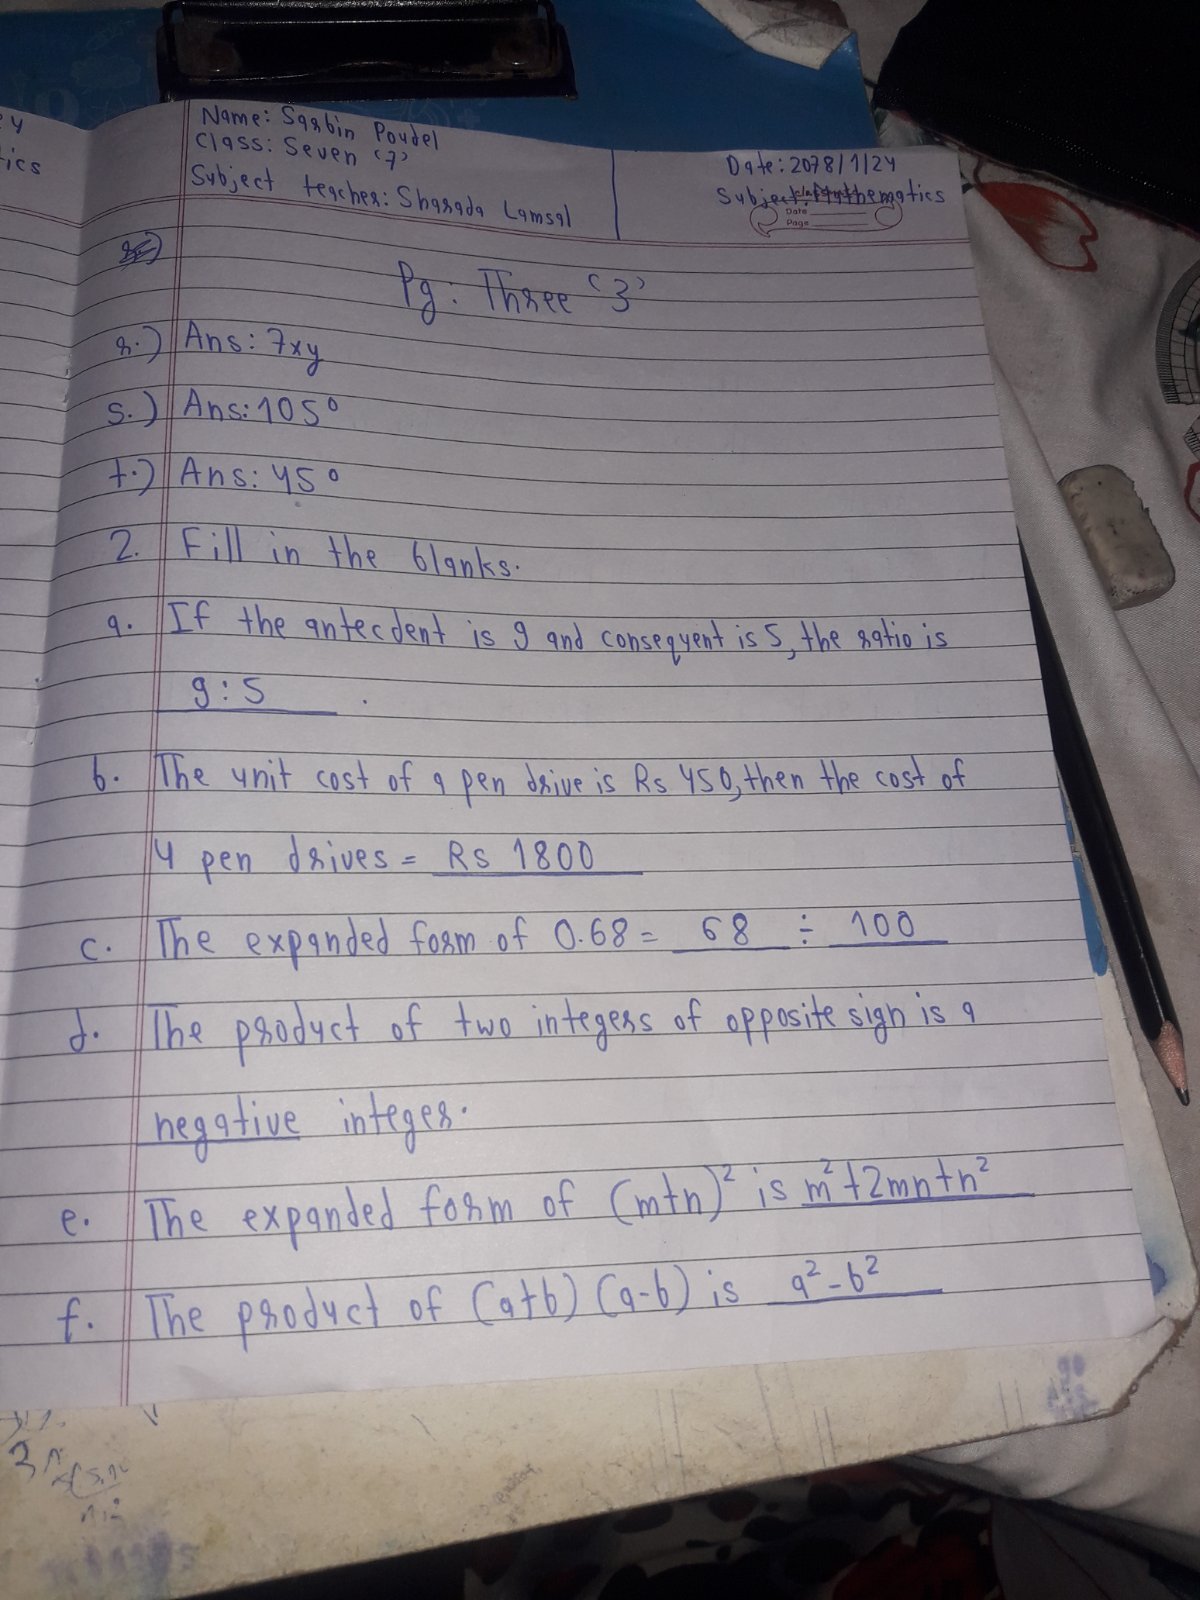 Name: Sarbin Poudel
Class: Seven '7'
Subject teacher: Sharada Lamsal
Date: 2078/1/24
Subject: Mathematics
Date
Page
Pg: Three '3'
r.) Ans: 7xy
s.) Ans: 105°
t.) Ans: 45°
2. Fill in the blanks.
a. If the antecdent is 9 and consequent is 5, the ratio is
9:5 .
b. The unit cost of a pen drive is Rs 450, then the cost of
4 pen drives = Rs 1800
c. The expanded form of 0.68 = 68 ÷ 100
d. The product of two integers of opposite sign is a
negative integer.
e. The expanded form of (m+n)² is m²+2mn+n²
f. The product of (a+b) (a-b) is a²-b²